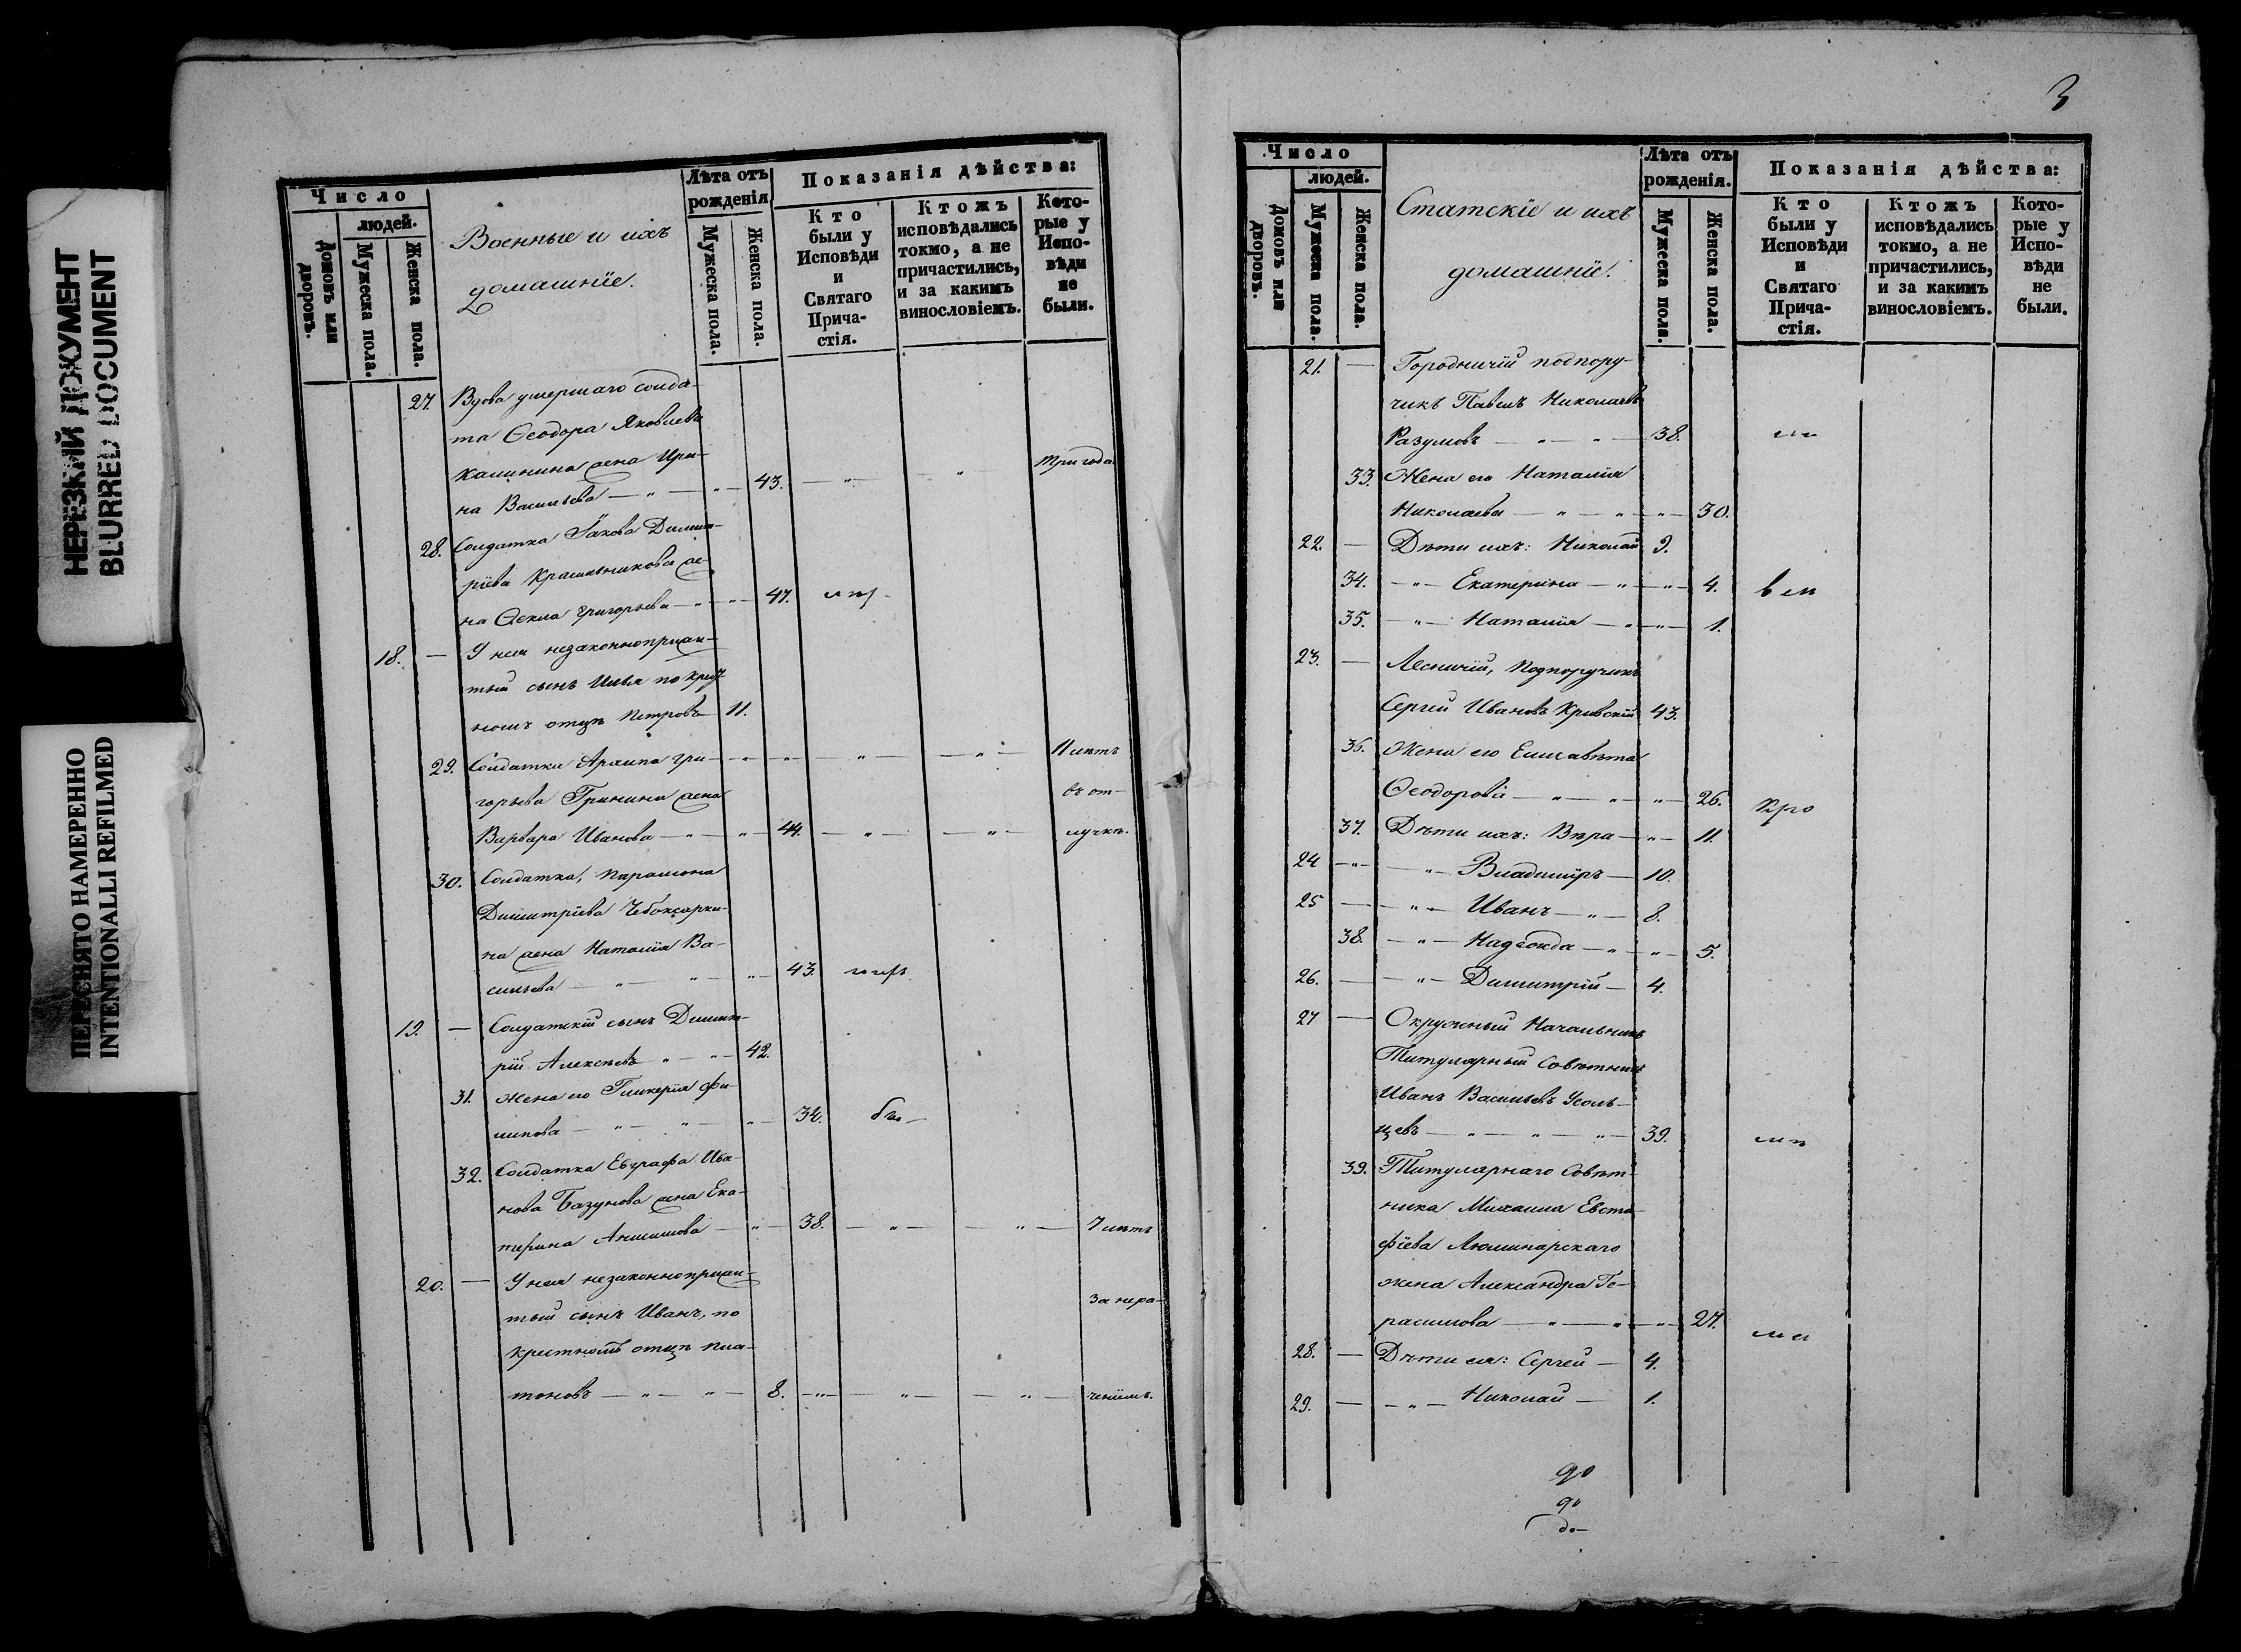 НЕРЕЗКИЙ ДОКУМЕНТ
BLURRED DOCUMENT
ПЕРЕСНЯТО НАМЕРЕННО
INTENTIONALLI REFILMED
Число
людей.
Домовъ или дворовъ.
Мужеска пола.
Женска пола.
Военные и ихъ
домашнїе.
Лѣта отъ рожденія
Мужеска пола.
Женска пола.
Показанія дѣйства:
Кто были у Исповѣди и Святаго Причастія.
Ктожъ исповѣдались токмо, а не причастились, и за какимъ винословіемъ.
Которые у Исповѣди не были.
27. Вдова умершаго солда-
та Ѳеодора Яковлева
Калинина жена Ири-
на Васильева — " — " — 43. — " — " — три года
28. Солдатка Іакова Димит-
рїева Красильникова же-
на Ѳекла Григорьева — " — " — 47.
18. — У нея незаконноприжи-
тый сынъ Илья по крест-
номъ отцѣ Петровъ 11.
29. Солдатка Архипа Гри- — " — " — " — " — 11 лѣтъ
горьева Гринина жена въ от-
Варвара Иванова — " — " — 44. — " — " — лучкѣ.
30. Солдатка, Парамона
Димитрїева Чебоксарки-
на жена Наталїя Ва-
сильева — " — " — " — 43.
19. — Солдатскїй сынъ Димит-
рїй Алексѣевъ " — " — 42.
31. Жена его Гликерїя Фи-
липова — " — " — " — 34.
32. Солдатка Евграфа Ива-
нова Базунова жена Ека-
терина Анисимова — " — 38. — " — " — 7 лѣтъ
20. — У нея незаконноприжи-
тый сынъ Иванъ, по за нера-
крестномъ отцѣ Пла-
тоновъ — " — " — 8. — " — " — " — ченїемъ.
3
Число
людей.
Домовъ или дворовъ.
Мужеска пола.
Женска пола.
Статскїе и ихъ
домашнїе.
Лѣта отъ рожденія.
Мужеска пола.
Женска пола.
Показанія дѣйства:
Кто были у Исповѣди и Святаго Причастія.
Ктожъ исповѣдались токмо, а не причастились, и за какимъ винословіемъ.
Которые у Исповѣди не были.
21. — Городничїй подпору-
чикъ Павелъ Николаевъ
Разумовъ — " — " — 38.
33. Жена его Наталїя
Николаева — " — " — " — 30.
22. — Дѣти ихъ: Николай 9.
34. — " — Екатерина — " — " — 4.
35. — " — Наталїя — " — " — 1.
23. — Лесничїй, Подпоручикъ
Сергей Ивановъ Кривскїй 43.
36. Жена его Елисавѣта
Ѳеодорова — " — " — " — 26.
37. Дѣти ихъ: Вѣра — " — 11.
24 — " — — " — Владимїръ — 10.
25 — — " — Иванъ — " — 8.
38. — " — Надежда — " — " — 5.
26. — — " — Димитрїй — 4.
27 — Окружный Начальникъ
Титулярный Совѣтникъ
Иванъ Васильевъ Усоль-
цевъ — " — " — " — 39.
39. Титулярнаго Совѣт-
ника Михаила Евста-
фїева Люминарскаго
жена Александра Ге-
расимова — " — " — " — 27.
28. — Дѣти ея: Сергей — 4.
29. — — " — Николай — 1.